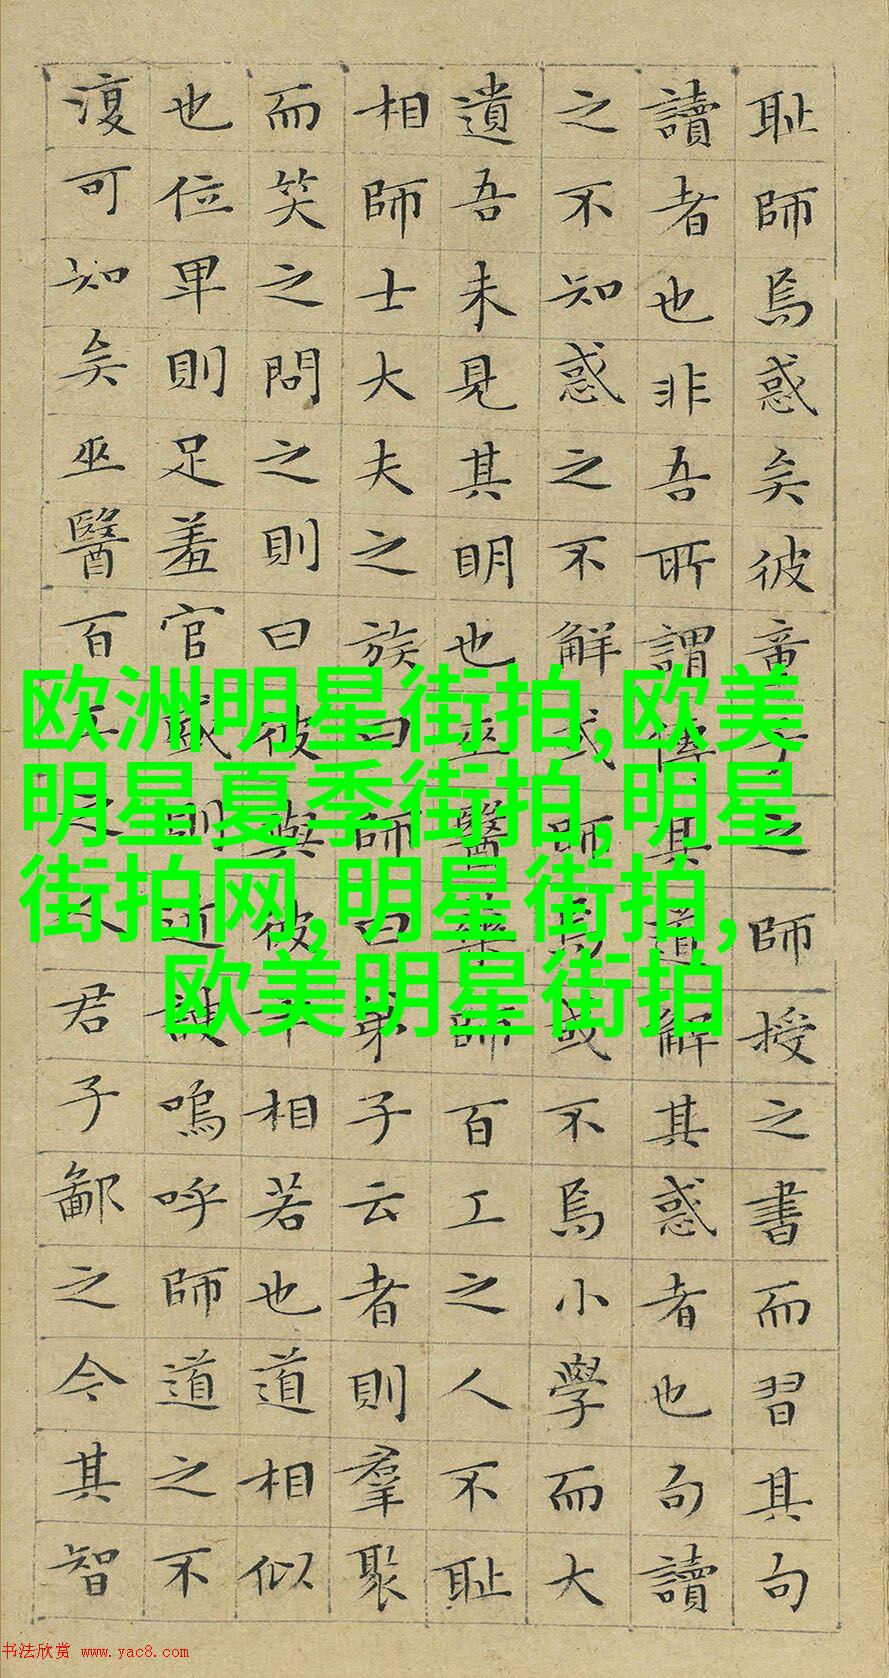 耻師焉惑矣彼童子之師授之書而習其句
讀者也非吾所謂傳其道解其惑者也句讀
之不知惑之不解或師焉或不焉小學而大
遺吾未見其明也巫醫藥師百工之人不耻
相師士大夫之族曰師曰弟子云者則羣聚
而笑之問之則曰彼與彼年相若也道相似
也位卑則足羞官盛則近諛嗚呼師道之不
復可知矣巫醫百工之人君子鄙之今其智
欧洲明星街拍,欧美
明星夏季街拍,明星
街拍网,明星街拍,
欧美明星街拍
书法欣赏 www.yac8.com